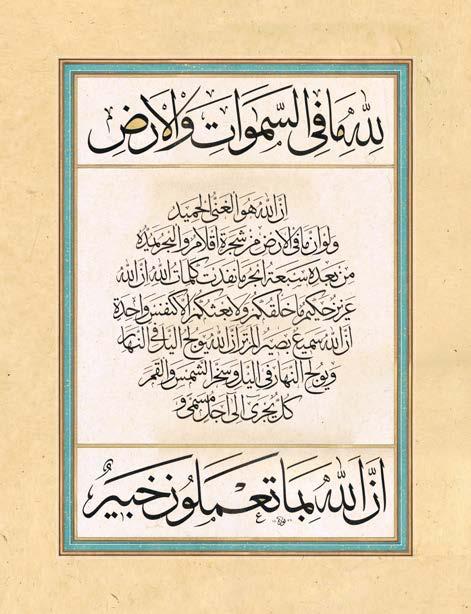 لله ما في السموات والارض
ان الله هو الغني الحميد
ولو ان ما في الارض من شجرة اقلام والبحر يمده
من بعده سبعة ابحر ما نفدت كلمات الله ان الله
عزيز حكيم ما خلقكم ولا بعثكم الا كنفس واحدة
ان الله سميع بصير الم تر ان الله يولج اليل في النهار
ويولج النهار في اليل وسخر الشمس والقمر
كل يجرى الى اجل مسمى و
ان الله بما تعملون خبير